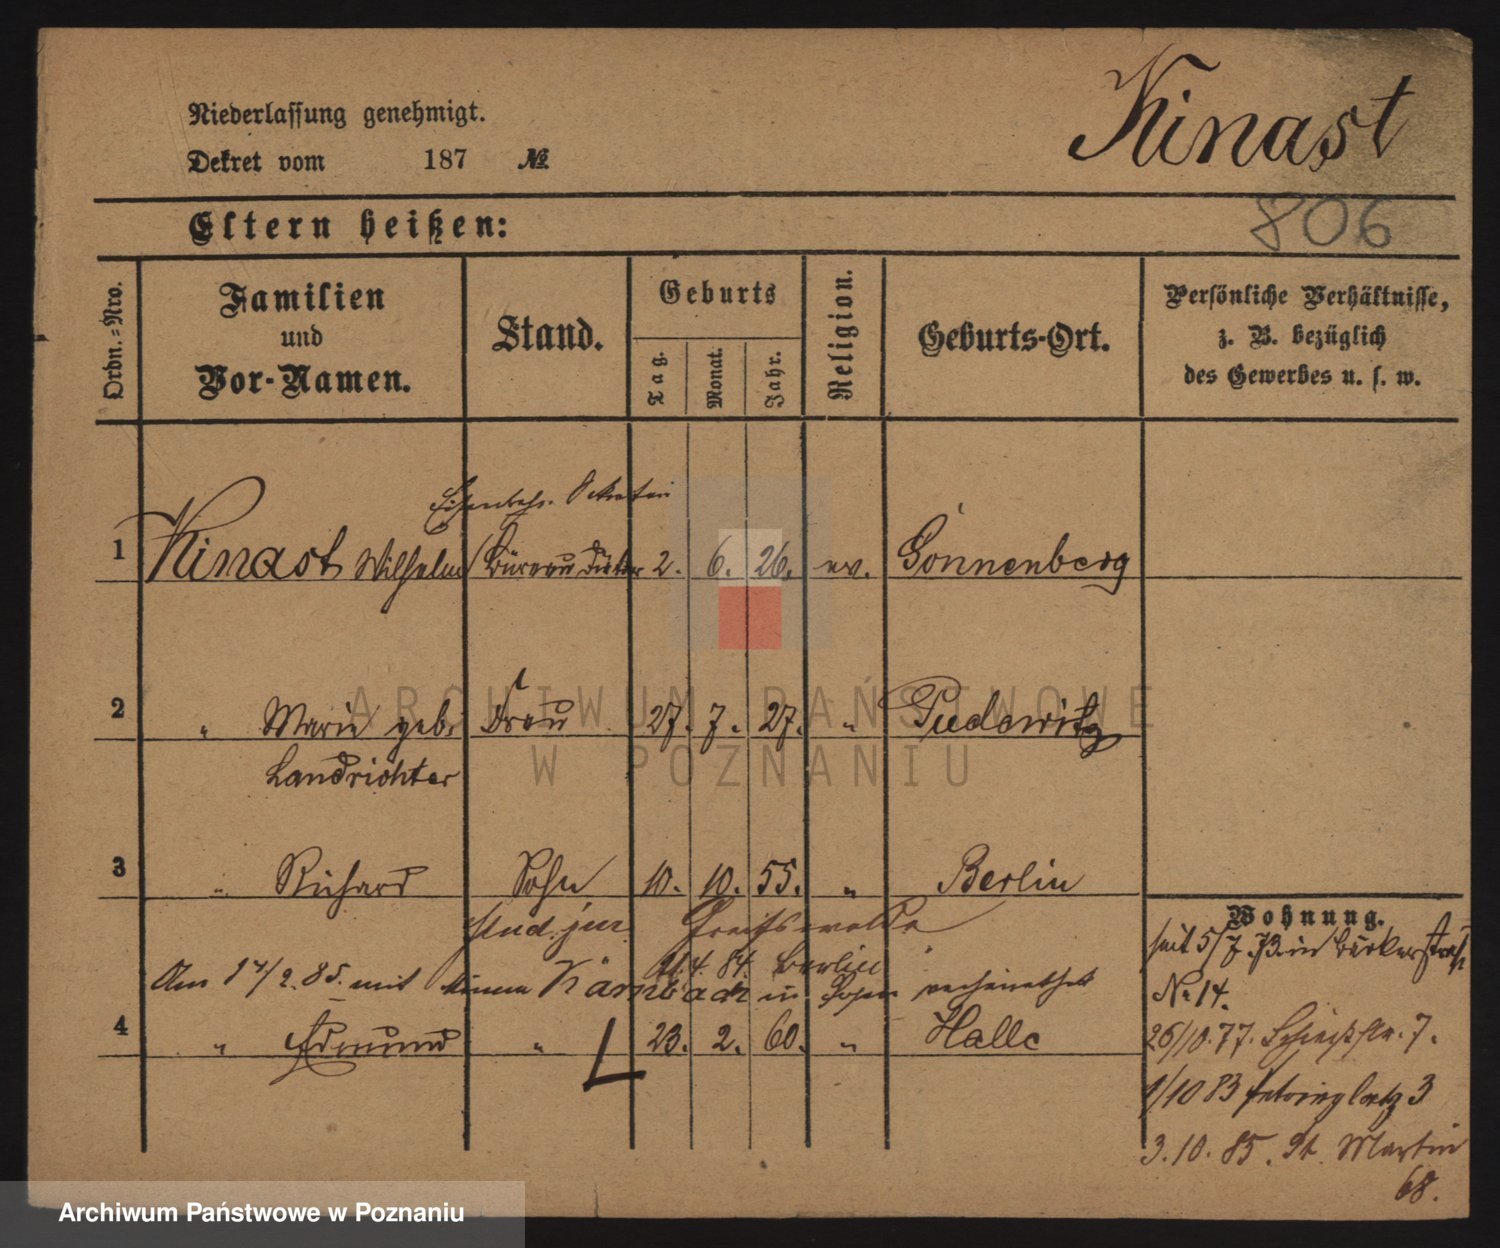 Niederlassung genehmigt.
Dekret vom 187 №
Kinast
Eltern heißen:
806
Ordn.-Nro.
Familien und Vor-Namen.
Stand.
Geburts
Tag. Monat. Jahr.
Religion.
Geburts-Ort.
Persönliche Verhältnisse,
z. B. bezüglich
des Gewerbes u. s. w.
Eisenbahn. Sekretär
1 Kinast Wilhelm Büreau Diätar 2. 6. 26. ev. Sonnenberg
2 " Marie geb. Frau 27. 7. 27. " Pudewitz
Landrichter
3 " Richard Sohn 10. 10. 55. " Berlin
stud. jur. Greifswalde
21.4. 84. Berlin
Am 14/2. 85. mit in verheirathet
4 " Edmund " 23. 2. 60. " Halle
Wohnung.
seit 5/7. 73. in Bäckerstraße
No 14.
26/10. 77. Schießstr. 7.
1/10 83 Petriplatz 3
3. 10. 85. St. Martin
68.
ARCHIWUM PAŃSTWOWE
W POZNANIU
Archiwum Państwowe w Poznaniu